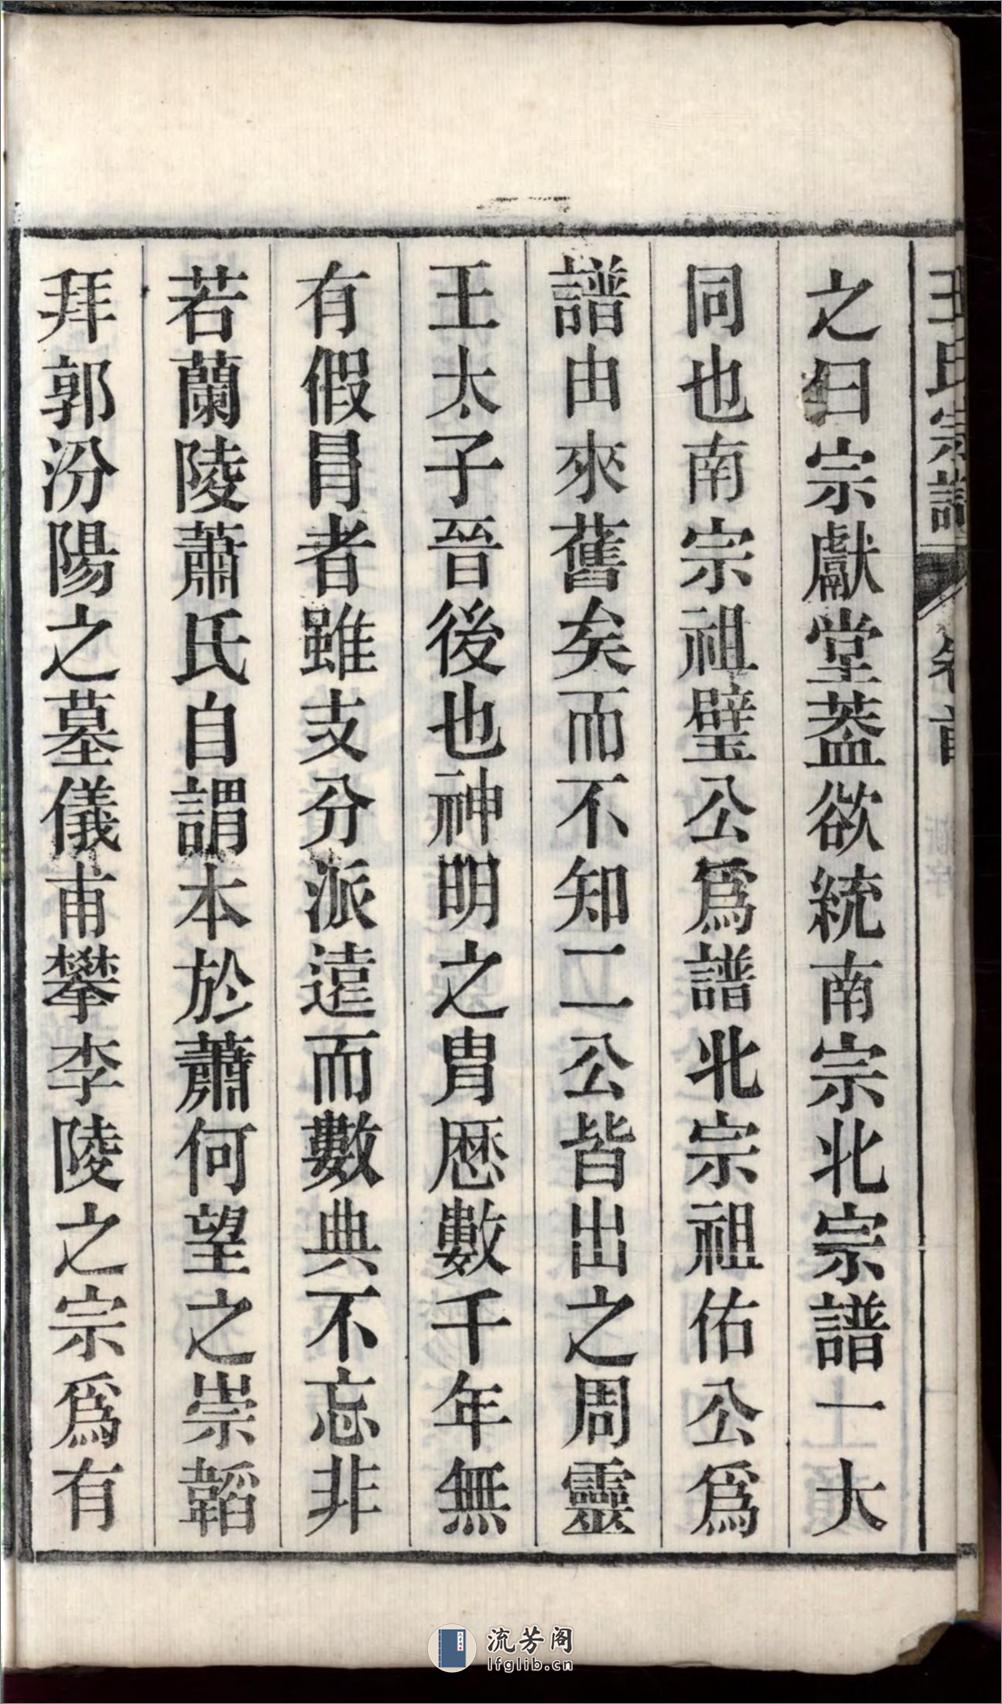 王氏宗譜 卷首
之曰宗獻堂葢欲統南宗北宗譜一大
同也南宗祖璧公爲譜北宗祖佑公爲
譜由來舊矣而不知二公皆出之周靈
王太子晉後也神明之胄厯數千年無
有假冐者雖支分派遠而數典不忘非
若蘭陵蕭氏自謂本於蕭何望之崇韜
拜郭汾陽之墓儀甫攀李陵之宗爲有
流芳阁
lfglib.cn